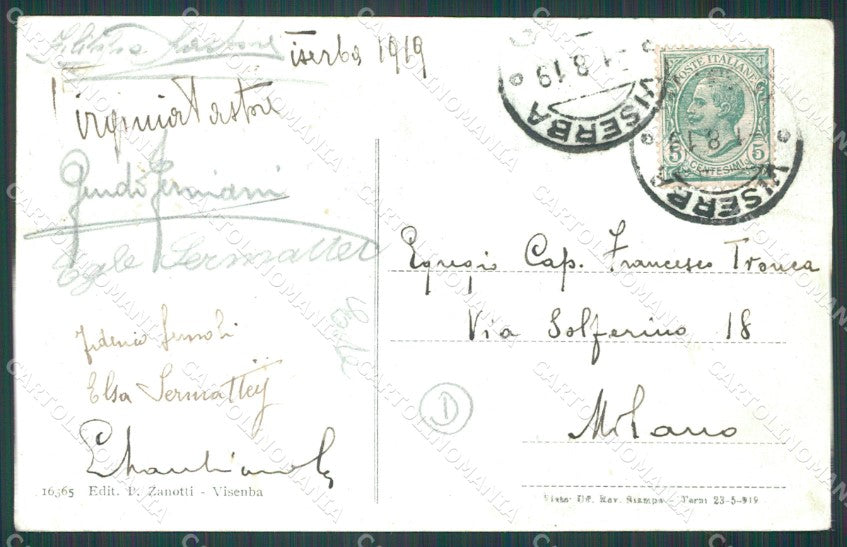 Viserba 1919
Virginia Pastore
Guido
Egle Sermattei
Elsa Sermattei
16365 Edit. P. Zanotti - Visenba
VISERBA
1 8 19
POSTE ITALIANE
5 CENTESIMI 5
VISERBA
Egregio Cap. Francesco Tronca
Via Solferino 18
Milano
D
Visto: Uff. Rev. Stampa - Terni 23-5-919
CARTOLINOMANIA